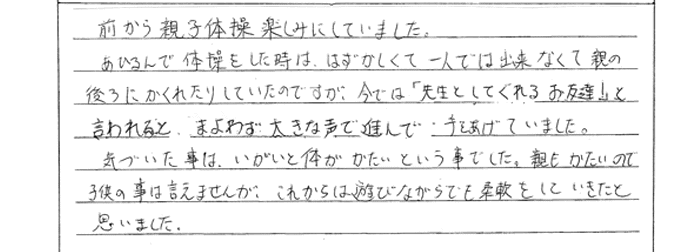 前から親子体操楽しみにしていました。
あひるんで体操をした時は、はずかしくて一人では出来なくて親の
後ろにかくれたりしていたのですが、今では「先生としてくれるお友達!」と
言われると、まよわず大きな声で進んで手をあげていました。
気づいた事は、いがいと体がかたいという事でした。親もかたいので
子供の事は言えませんが、これからは遊びながらでも柔軟をしていきたと
思いました。